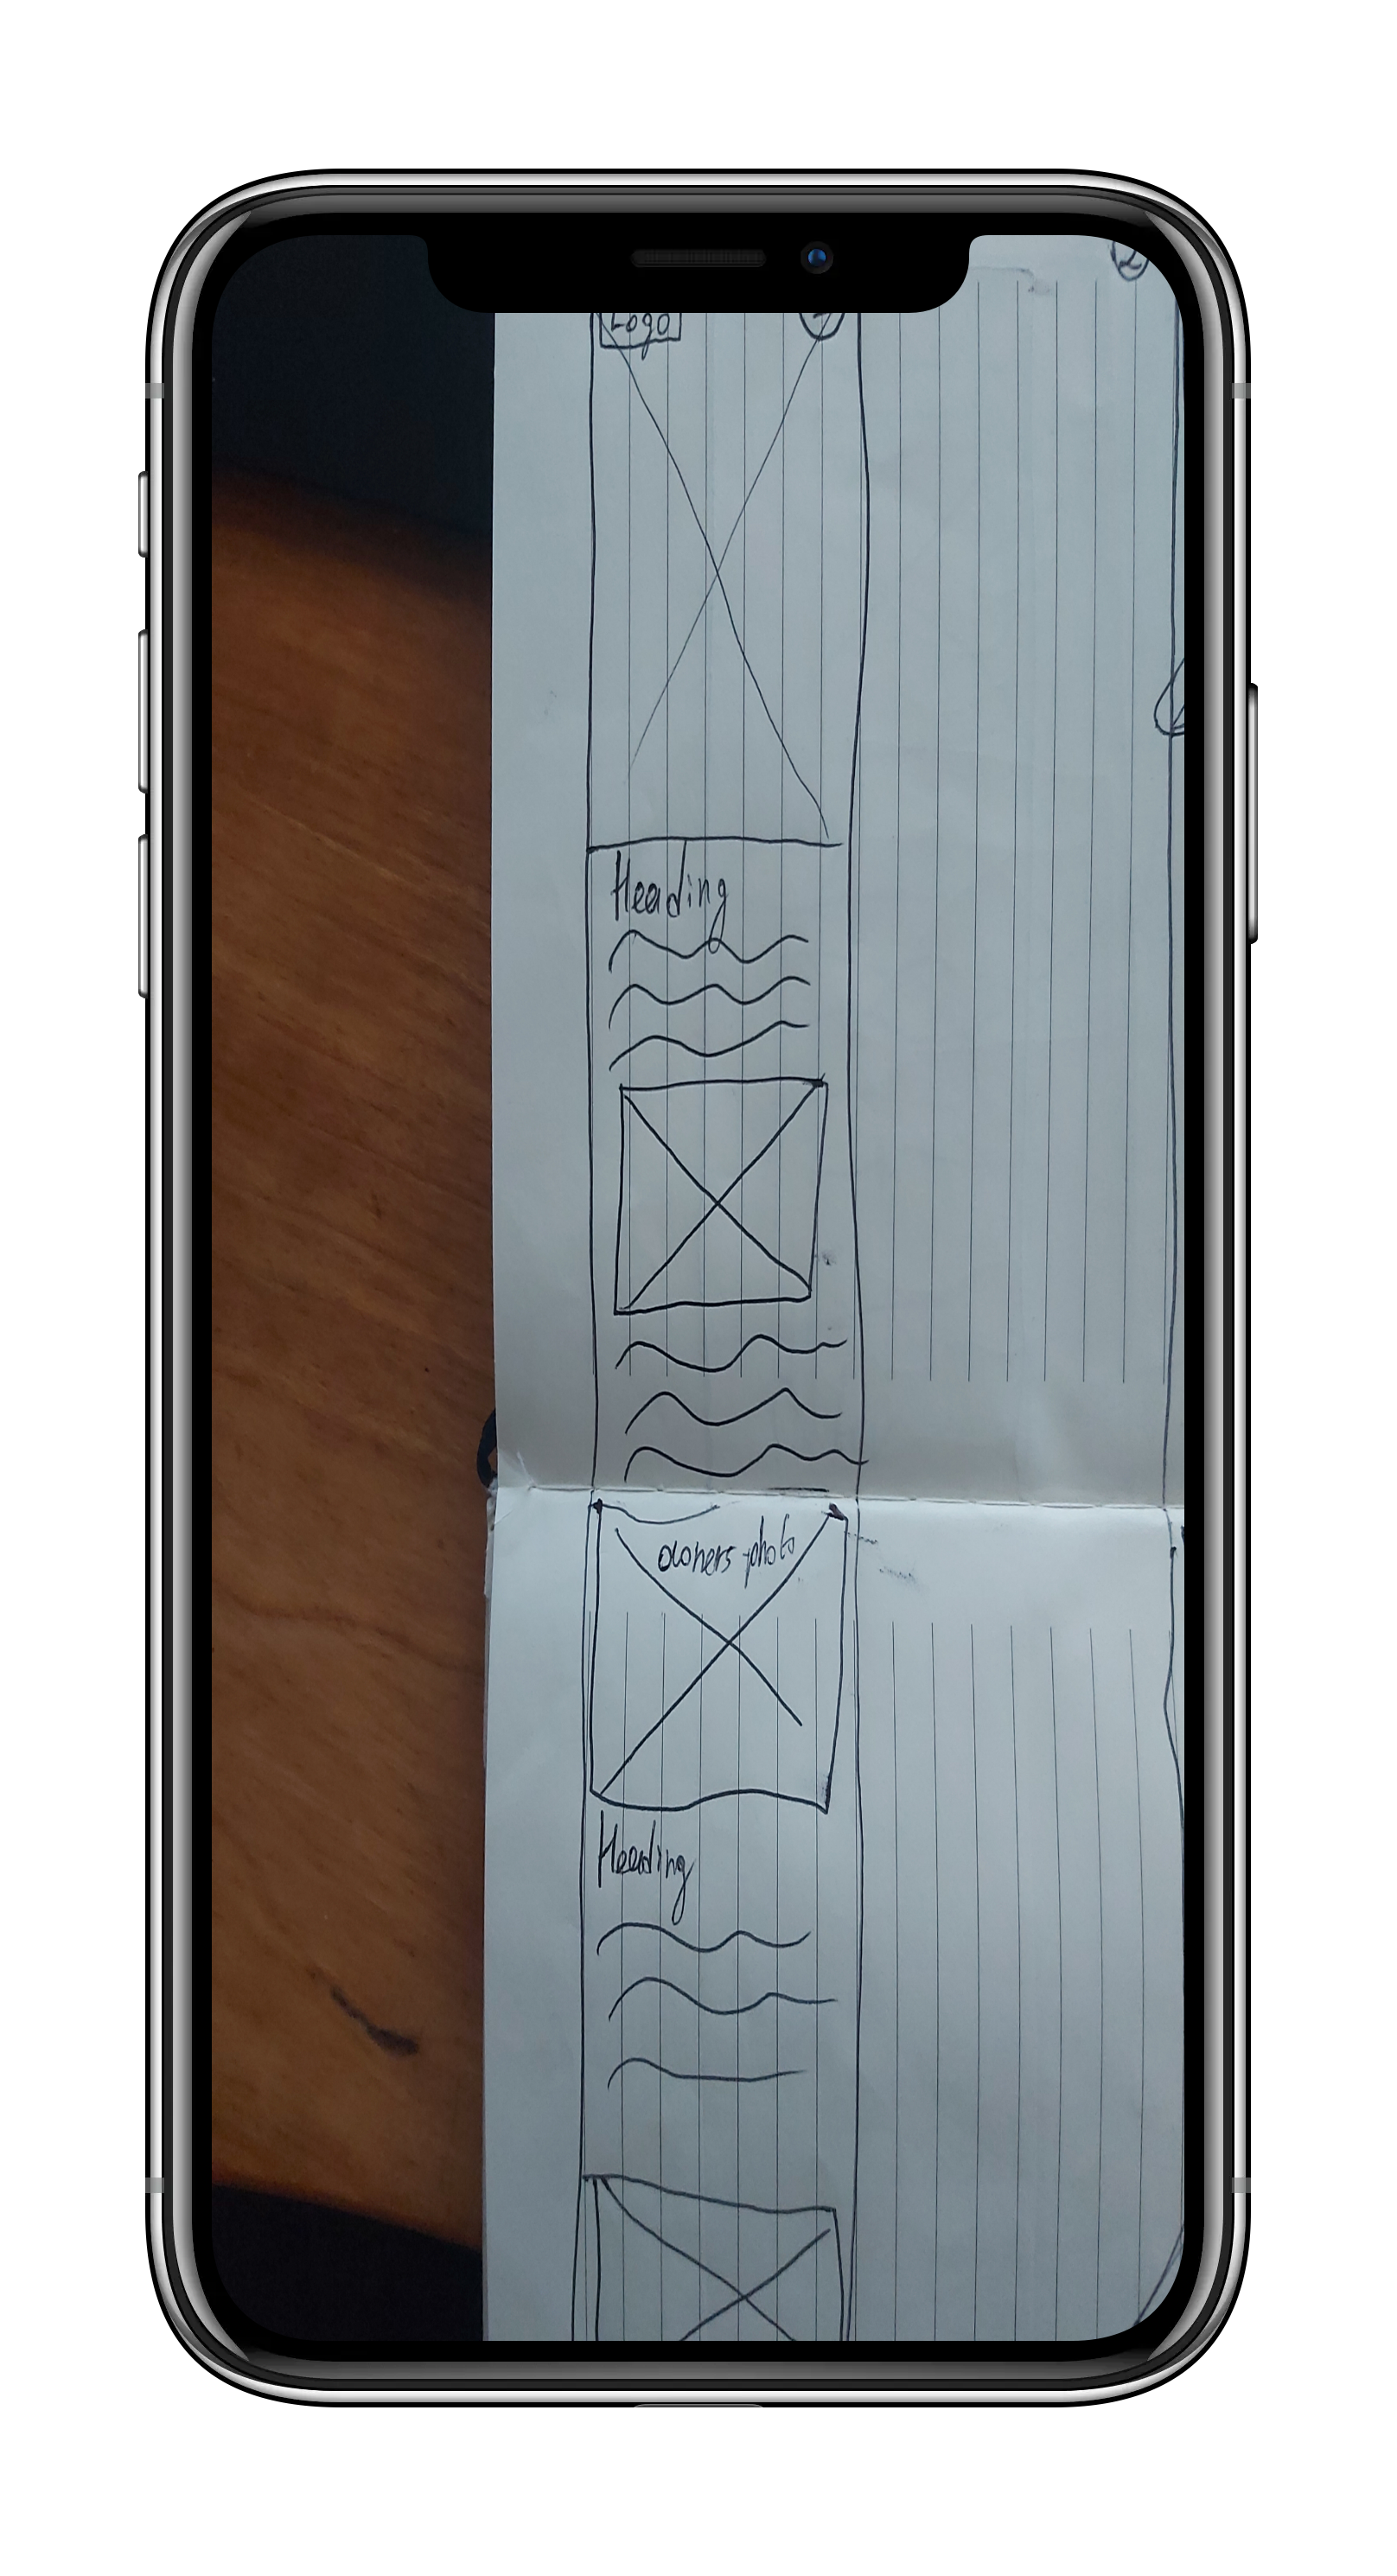 Logo
Heading
owners photo
Heading